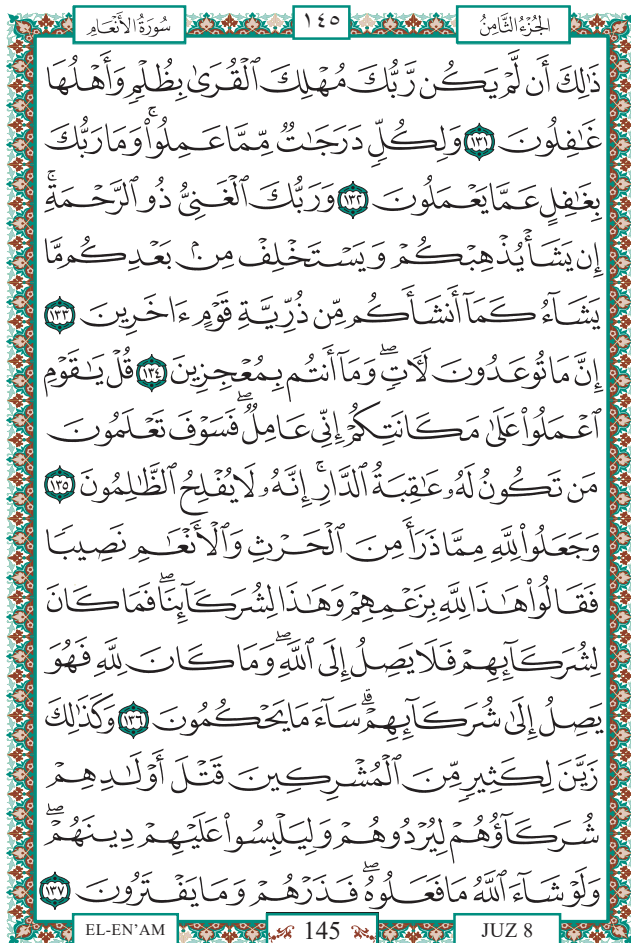 سُورَةُ الأَنْعَامِ ١٤٥ الجُزْءُ الثَّامِنُ
ذَٰلِكَ أَن لَّمْ يَكُن رَّبُّكَ مُهْلِكَ ٱلْقُرَىٰ بِظُلْمٍ وَأَهْلُهَا
غَٰفِلُونَ ١٣١ وَلِكُلٍّ دَرَجَٰتٌ مِّمَّا عَمِلُوا۟ۚ وَمَا رَبُّكَ
بِغَٰفِلٍ عَمَّا يَعْمَلُونَ ١٣٢ وَرَبُّكَ ٱلْغَنِىُّ ذُو ٱلرَّحْمَةِۚ
إِن يَشَأْ يُذْهِبْكُمْ وَيَسْتَخْلِفْ مِنۢ بَعْدِكُم مَّا
يَشَآءُ كَمَآ أَنشَأَكُم مِّن ذُرِّيَّةِ قَوْمٍ ءَاخَرِينَ ١٣٣
إِنَّ مَا تُوعَدُونَ لَءَاتٍۖ وَمَآ أَنتُم بِمُعْجِزِينَ ١٣٤ قُلْ يَٰقَوْمِ
ٱعْمَلُوا۟ عَلَىٰ مَكَانَتِكُمْ إِنِّى عَامِلٌۖ فَسَوْفَ تَعْلَمُونَ
مَن تَكُونُ لَهُۥ عَٰقِبَةُ ٱلدَّارِۚ إِنَّهُۥ لَا يُفْلِحُ ٱلظَّٰلِمُونَ ١٣٥
وَجَعَلُوا۟ لِلَّهِ مِمَّا ذَرَأَ مِنَ ٱلْحَرْثِ وَٱلْأَنْعَٰمِ نَصِيبًا
فَقَالُوا۟ هَٰذَا لِلَّهِ بِزَعْمِهِمْ وَهَٰذَا لِشُرَكَآئِنَاۖ فَمَا كَانَ
لِشُرَكَآئِهِمْ فَلَا يَصِلُ إِلَى ٱللَّهِۖ وَمَا كَانَ لِلَّهِ فَهُوَ
يَصِلُ إِلَىٰ شُرَكَآئِهِمْۗ سَآءَ مَا يَحْكُمُونَ ١٣٦ وَكَذَٰلِكَ
زَيَّنَ لِكَثِيرٍ مِّنَ ٱلْمُشْرِكِينَ قَتْلَ أَوْلَٰدِهِمْ
شُرَكَآؤُهُمْ لِيُرْدُوهُمْ وَلِيَلْبِسُوا۟ عَلَيْهِمْ دِينَهُمْۖ
وَلَوْ شَآءَ ٱللَّهُ مَا فَعَلُوهُۖ فَذَرْهُمْ وَمَا يَفْتَرُونَ ١٣٧
EL-EN'AM 145 JUZ 8